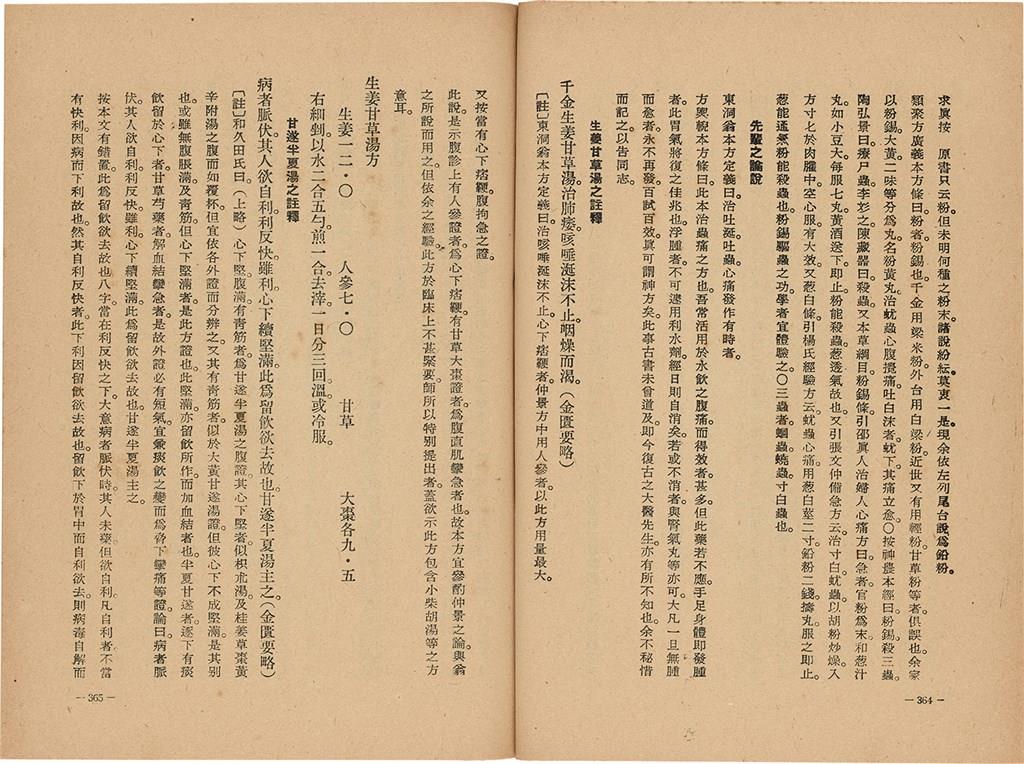 求眞按　原書只云粉。但未明何種之粉末。諸說紛紜。莫衷一是。現余依左列尾台說爲鉛粉。
類聚方廣義本方條曰。粉者粉錫也。千金用粱米粉。外台用白粱粉。近世又有用輕粉甘草粉等者。俱誤也。余家
以粉錫大黃。二味等分爲丸。名粉黃丸。治蚘蟲心腹攪痛。吐白沫者。蚘下。其痛立愈。〇按神農本經曰。粉錫殺三蟲。
陶弘景曰。療尸蟲。李彣之陳藏器曰。殺蟲。又本草綱目粉錫條。引邵眞人治婦人心痛方曰。急者官粉爲末。和葱汁
丸。如小豆大。每服七丸。黃酒送下即止。粉能殺蟲。葱透氣故也。又引張文仲備急方云。治寸白蚘蟲。以胡粉炒燥。入
方寸匕於肉臛中。空心服。有大效。又葱白條。引楊氏經驗方云。蚘蟲心痛。用葱白莖二寸。鉛粉二錢。擣丸服之即止。
葱能通氣。粉能殺蟲也。粉錫驅蟲之功。學者宜體驗之。〇三蟲者。蛔蟲。蟯蟲。寸白蟲也。
先輩之論說
東洞翁本方定義曰。治吐涎吐蟲心痛發作有時者。
方輿輗本方條曰。此本治蟲痛之方也。吾常活用於永飲之腹痛。而得效者甚多。但此藥若不應。手足身體即發腫
者。此胃氣將復之佳兆也。浮腫者不可遽用利水劑。經日則自消矣。若或不消者。與腎氣丸等亦可。大凡一旦無腫
而愈者。永不再發。百試百效。眞可謂神方矣。此事古書未曾道及。即今復古之大醫先生。亦有所不知也。余不秘惜
而記之。以告同志。
生姜甘草湯之註釋
千金生姜甘草湯。治肺痿咳唾涎沫不止。咽燥而渴。(金匱要略)
〔註〕東洞翁本方定義曰。治咳唾涎沫不止。心下痞鞕者。仲景方中用人參者。以此方用量最大。
又按當有心下痞鞕。腹拘急之證。
此說是示腹診上有人參證者。爲心下痞鞕。有甘草大棗證者。爲腹直肌攣急者也。故本方宜參酌仲景之論。與翁
之所說而用之。但依余之經驗。此方於臨床上不甚緊要。師所以特別提出者。蓋欲示此方包含小柴胡湯等之方
意耳。
生姜甘草湯方
生姜一二・〇　人參七・〇　甘草　大棗各九・五
右細剉。以水二合五勺。煎一合。去滓。一日分三回。溫或冷服。
甘遂半夏湯之註釋
病者脈伏。其人欲自利。利反快。雖利。心下續堅滿。此爲留飲欲去故也。甘遂半夏湯主之。(金匱要略)
〔註〕和久田氏曰。(上略)心下堅。腹滿有青筋者。爲甘遂半夏湯之腹證。其心下堅者。似枳朮湯及桂姜草棗黃
辛附湯之腹而如覆杯。但宜依各外證而分辨之。又其有青筋者。似於大黃甘遂湯證。但彼心下不成堅滿。是其別
也。或雖無腹脹滿及青筋。但心下堅滿者。是此方證也。此堅滿亦留飲所作。而加血結者也。半夏甘遂者。逐下有痰
飲留於心下者。甘草芍藥者。解血結攣急者。是故外證必有短氣。宜兼痰飲之變而爲脅下攣痛等證。論曰。病者脈
伏。其人欲自利。利反快。雖利。心下續堅滿。此爲留飲欲去故也。甘遂半夏湯主之。
按本文有錯置。此爲留飲欲去故也八字。當在利反快之下。大意病者脈伏時。其人未藥。但欲自利。凡自利者。不當
有快利。因病而下利故也。然其自利反快者。此下利因留飲欲去故也。留飲下於胃中而自利欲去。則病毒自解而
— 364 —
— 365 —